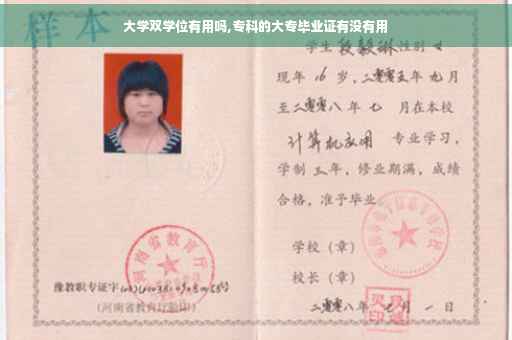 大学双学位有用吗,专科的大专毕业证有没有用
样本
学生段毅琳性别女
现年16岁,二零零五年九月
至二零零八年七月在本校
计算机应用 专业学习,
学制三年,修业期满,成绩
合格,准予毕业
学校(章)
校长(章)
二零零八年 月一日
河南省教育厅
豫教职专证字
(河南省教育厅验印)